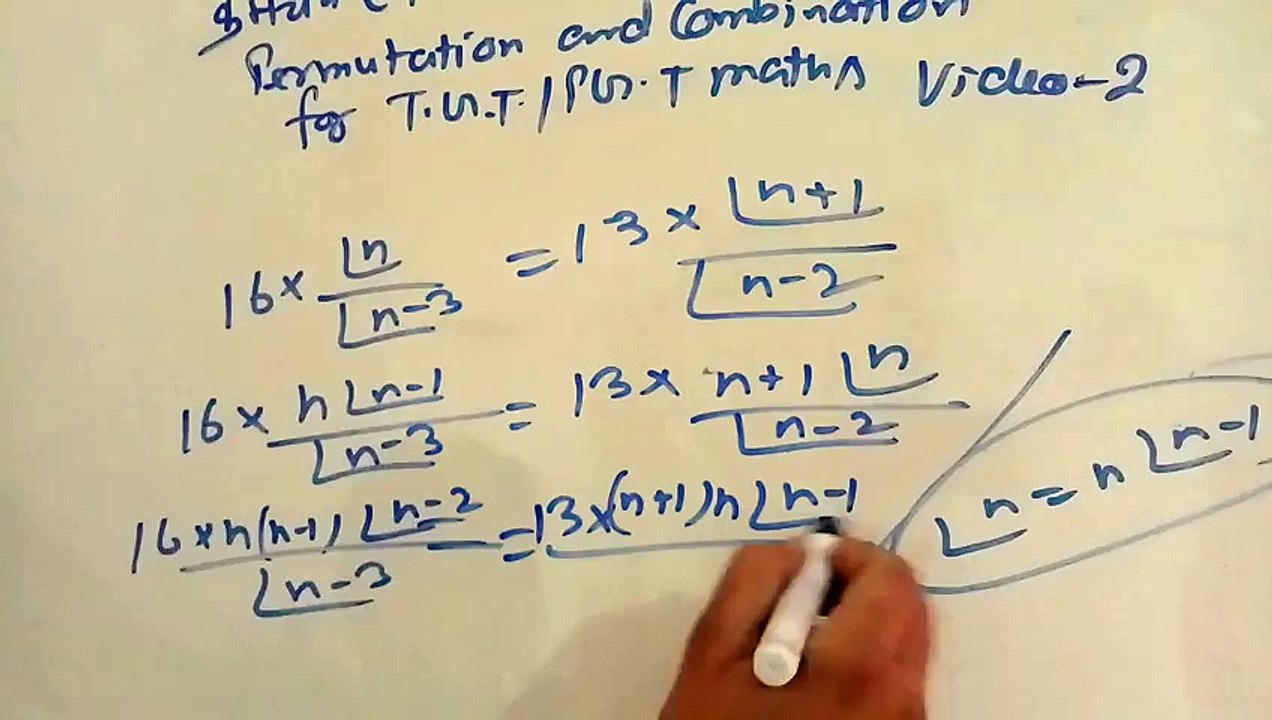 Permutation and Combination
for T.G.T. / P.G.T maths Video-2
16 × ⌊n / ⌊n-3 = 13 × ⌊n+1 / ⌊n-2
16 × n ⌊n-1 / ⌊n-3 = 13 × n+1 ⌊n / ⌊n-2
16 × n(n-1) ⌊n-2 / ⌊n-3 = 13 × (n+1) n ⌊n-1
⌊n = n ⌊n-1